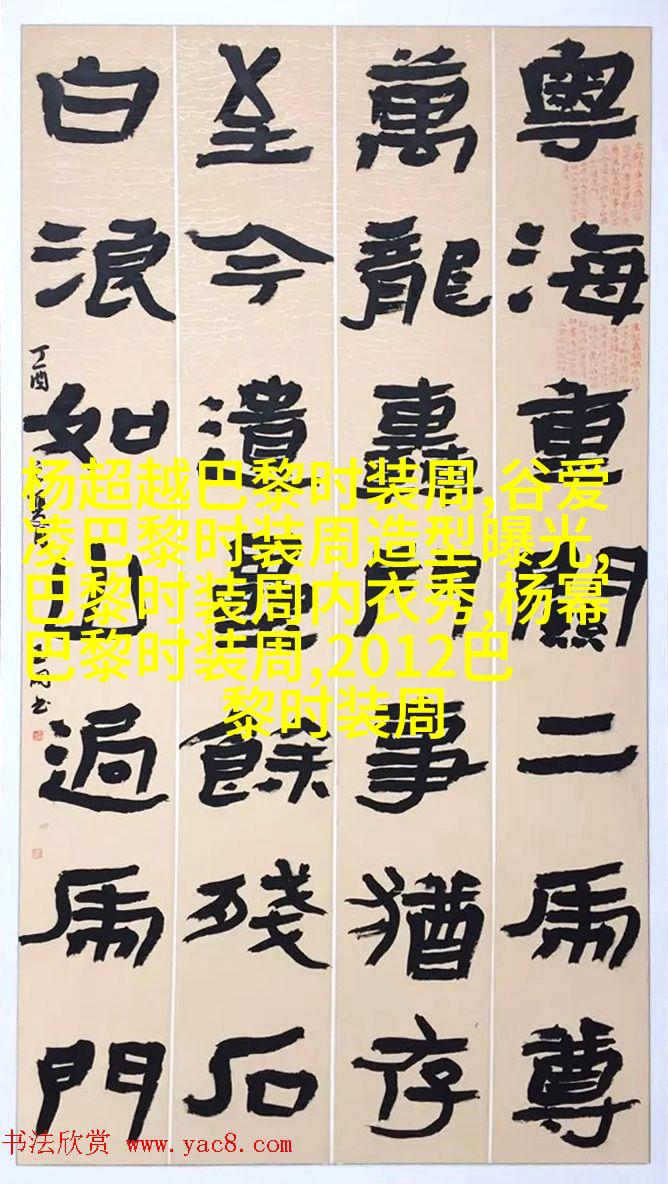 粤海重關二乕尊
萬龍轟鬥事猶存
至今遺壘餘殘石
白浪如山過乕門
丁酉
书
杨超越巴黎时装周,谷爱
凌巴黎时装周造型曝光,
巴黎时装周内衣秀,杨幂
巴黎时装周,2012巴
黎时装周
书法欣赏 www.yac8.com